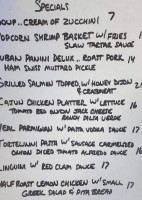 SPECIALS
SOUP...CREAM OF ZUCCHINI 7
POPCORN SHRIMP BASKET W/ FRIES 14
SLAW TARTAR SAUCE
CUBAN PANINI DELUX.. ROAST PORK 14
HAM SWISS MUSTARD PICKLE
GRILLED SALMON TOPPED, W/ HONEY DIJON
& CRABMEAT
CAJUN CHICKEN PLATTER W/ LETTUCE 16
TOMATO RED ONION JACK CHEESE
RANCH PILLA VERDE
VEAL PARMIGIAN W/ PASTA VODKA SAUCE 17
TORTELLINI PASTA W/ SAUSAGE CARMELIZED
ONION DICED TOMATO ALFREDO SAUCE 16
LINGUINI W/ RED CLAM SAUCE 17
HALF ROAST LEMON CHICKEN W/ SMALL 17
GREEK SALAD & PITA BREAD